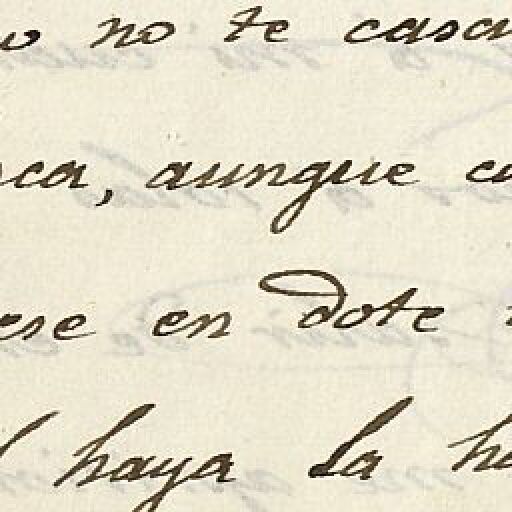 no te casa
ca, aunque c
ese en dote
haya la ha